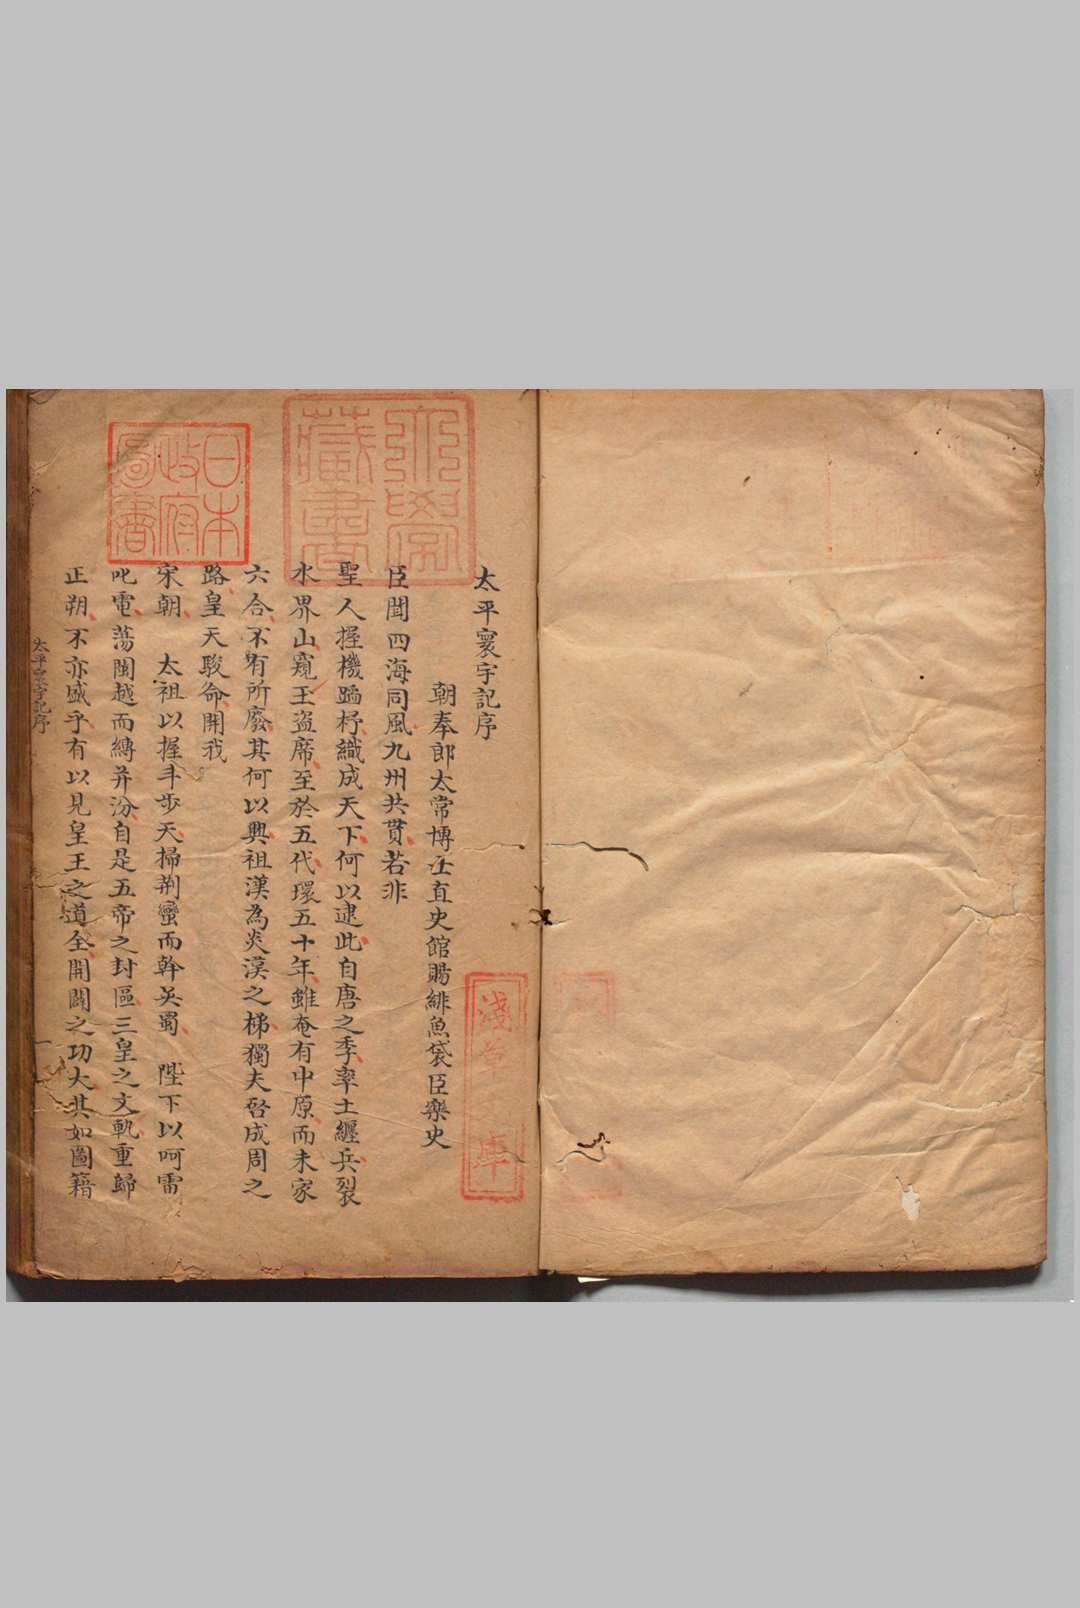 太平寰宇記序
朝奉郎太常博士直史館賜緋魚袋臣樂史
臣聞四海同風九州共貫若非
聖人握機蹈杼織成天下何以逮此自唐之季率土纒兵裂
水界山窺王盜席至於五代環五十年雖奄有中原而未家
六合不有所廢其何以興祖漢為炎漢之梯獨夫啓成周之
路皇天駿命開我
宋朝　太祖以握斗步天掃荆蠻而幹吳蜀　陛下以呵雷
叱電蕩閩越而縛并汾自是五帝之封區三皇之文軌重歸
正朔不亦盛乎有以見皇王之道全開闢之功大其如圖籍
太平寰宇記序
一
日本
政府
圖書
大學
藏書
淺草文庫